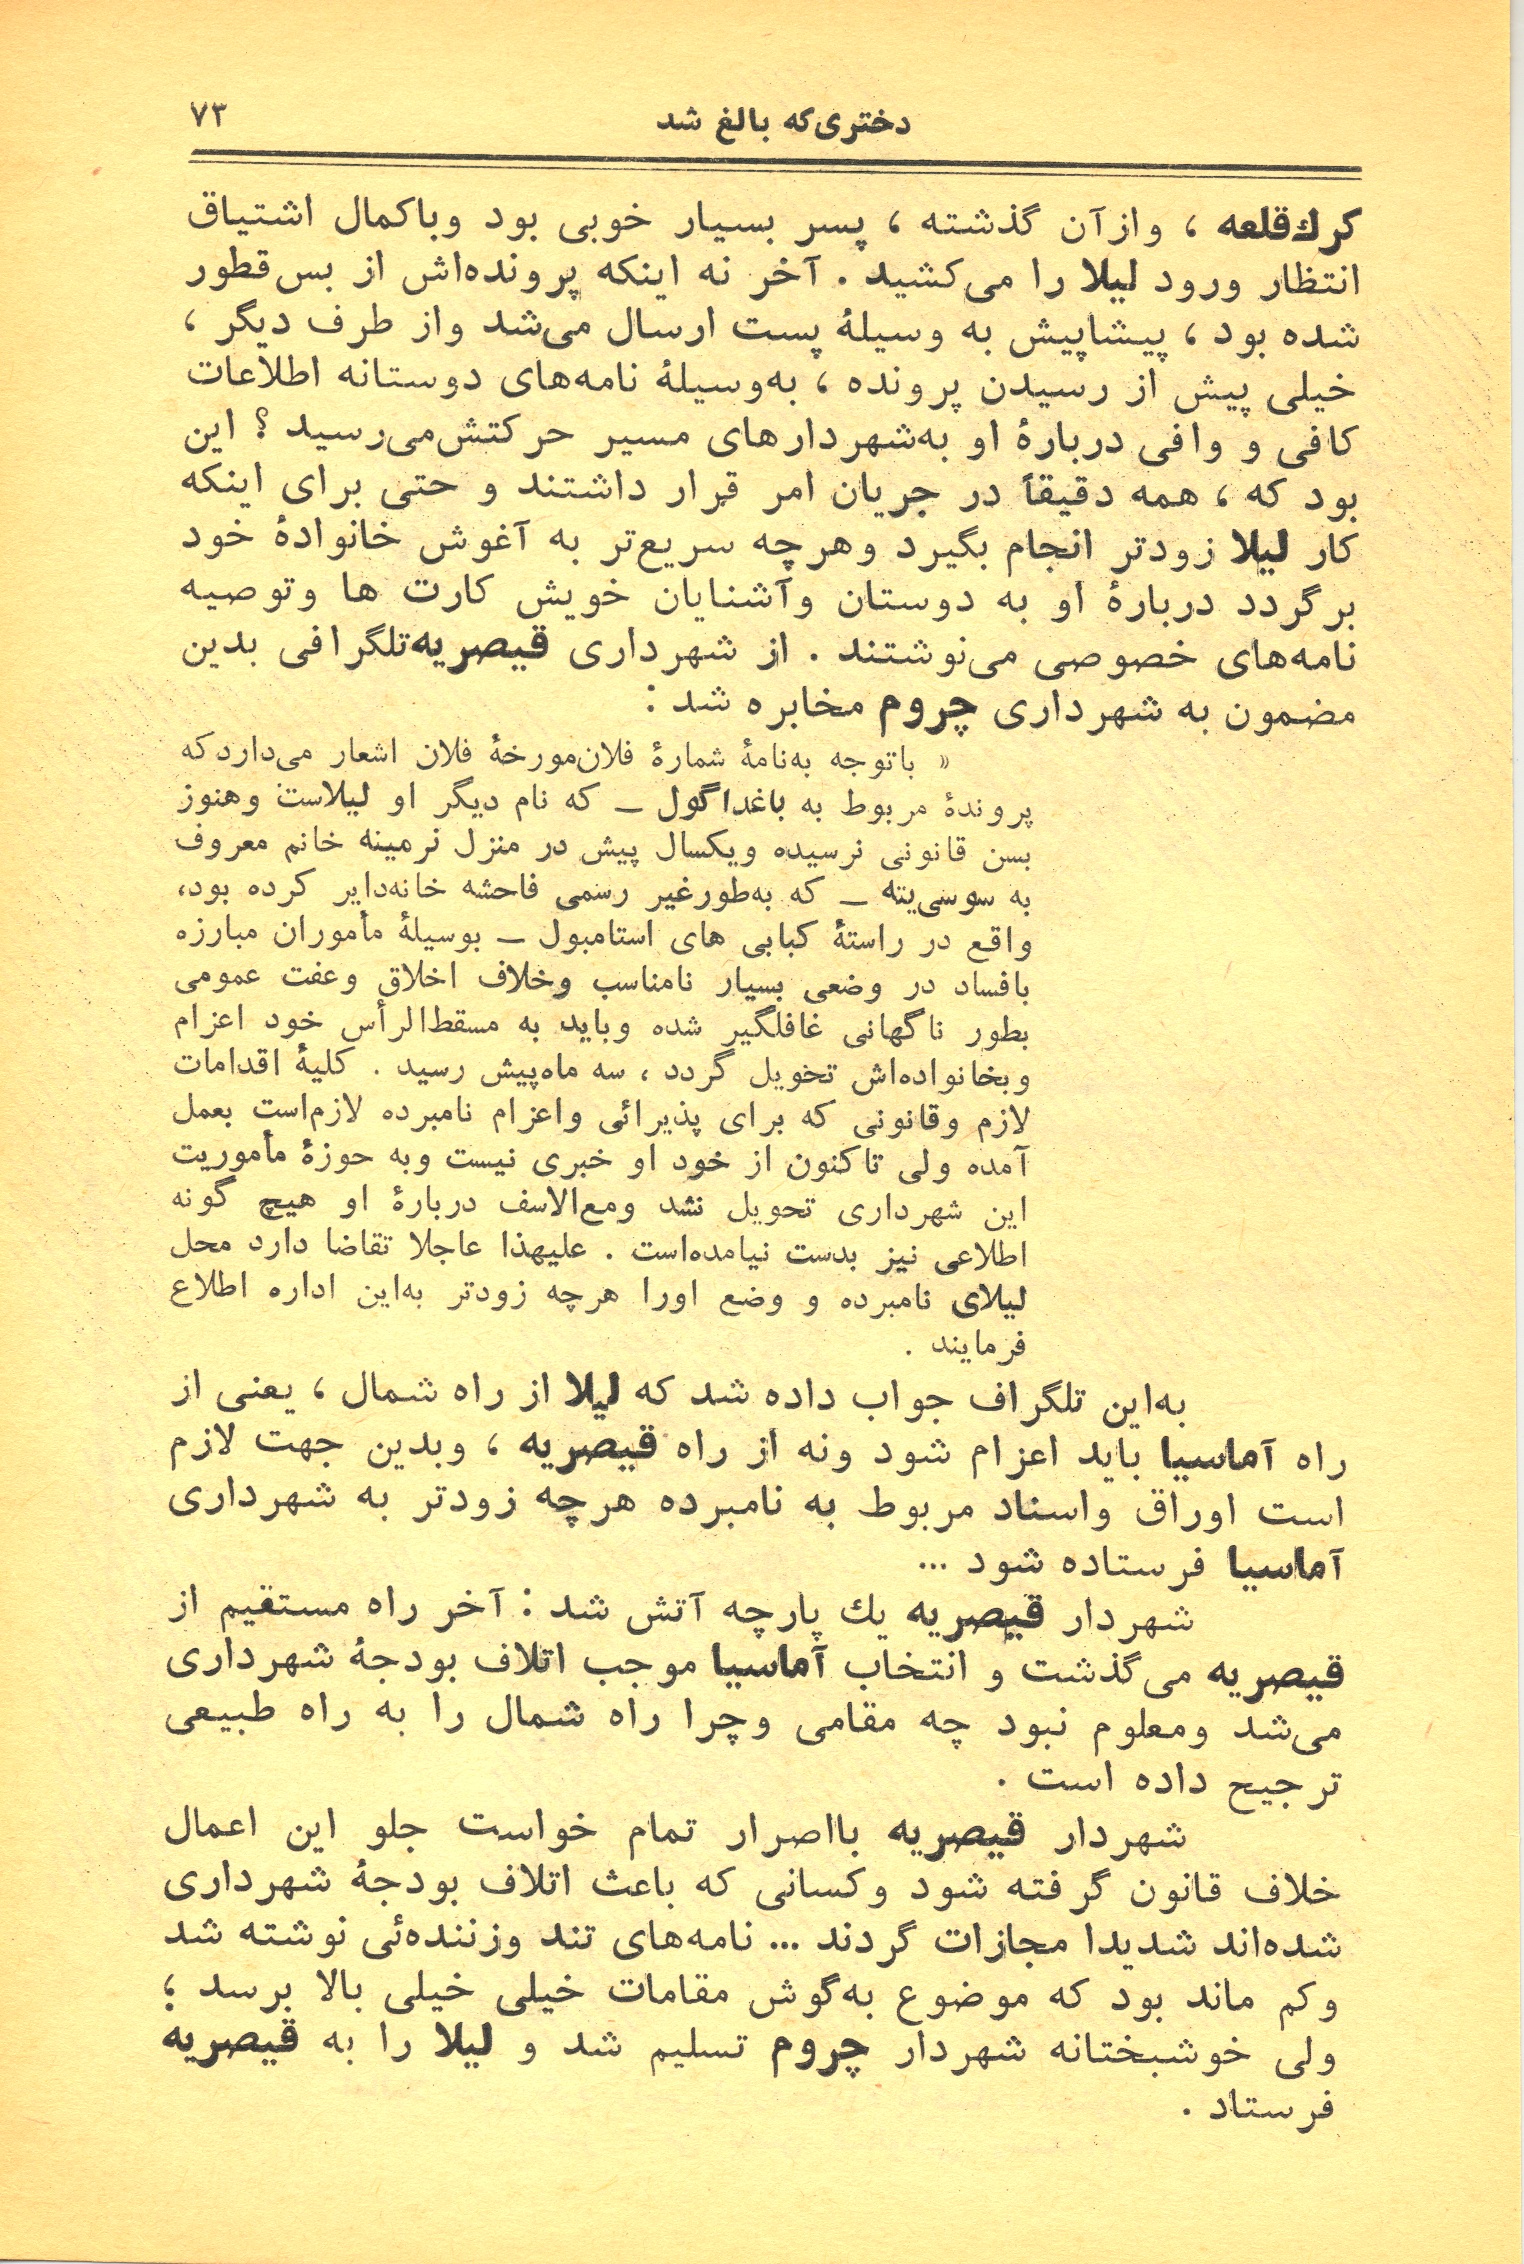 دختری‌که بالغ شد
۷۳
کرك‌قلعه ، و از آن گذشته ، پسر بسیار خوبی بود و باکمال اشتیاق
انتظار ورود لیلا را می‌کشید . آخر نه اینکه پرونده‌اش از بس‌قطور
شده بود ، پیشاپیش به وسیلهٔ پست ارسال می‌شد و از طرف دیگر ،
خیلی پیش از رسیدن پرونده ، به‌وسیلهٔ نامه‌های دوستانه اطلاعات
کافی و وافی دربارهٔ او به‌شهردارهای مسیر حرکتش‌می‌رسید ؟ این
بود که ، همه دقیقاً در جریان امر قرار داشتند و حتی برای اینکه
کار لیلا زودتر انجام بگیرد و هرچه سریع‌تر به آغوش خانوادهٔ خود
برگردد دربارهٔ او به دوستان و آشنایان خویش کارت ها و توصیه
نامه‌های خصوصی می‌نوشتند . از شهرداری قیصریه‌تلگرافی بدین
مضمون به شهرداری چروم مخابره شد :
« باتوجه به‌نامهٔ شمارهٔ فلان‌مورخهٔ فلان اشعار می‌داردکه
پروندهٔ مربوط به باغداگول ــ که نام دیگر او لیلاست وهنوز
بسن قانونی نرسیده و یکسال پیش در منزل نرمینه خانم معروف
به سوسی‌یته ــ که به‌طورغیر رسمی فاحشه خانه‌دایر کرده بود،
واقع در راستهٔ کبابی های استامبول ــ بوسیلهٔ مأموران مبارزه
بافساد در وضعی بسیار نامناسب و خلاف اخلاق و عفت عمومی
بطور ناگهانی غافلگیر شده و باید به مسقط‌الرأس خود اعزام
و بخانواده‌اش تحویل گردد ، سه ماه‌پیش رسید . کلیهٔ اقدامات
لازم و قانونی که برای پذیرائی و اعزام نامبرده لازم‌است بعمل
آمده ولی تاکنون از خود او خبری نیست وبه حوزهٔ مأموریت
این شهرداری تحویل نشد ومع‌الاسف دربارهٔ او هیچ گونه
اطلاعی نیز بدست نیامده‌است . علیهذا عاجلا تقاضا دارد محل
لیلای نامبرده و وضع اورا هرچه زودتر به‌این اداره اطلاع
فرمایند .
به‌این تلگراف جواب داده شد که لیلا از راه شمال ، یعنی از
راه آماسیا باید اعزام شود ونه از راه قیصریه ، و بدین جهت لازم
است اوراق و اسناد مربوط به نامبرده هرچه زودتر به شهرداری
آماسیا فرستاده شود ...
شهردار قیصریه یك پارچه آتش شد : آخر راه مستقیم از
قیصریه می‌گذشت و انتخاب آماسیا موجب اتلاف بودجهٔ شهرداری
می‌شد و معلوم نبود چه مقامی و چرا راه شمال را به راه طبیعی
ترجیح داده است .
شهردار قیصریه بااصرار تمام خواست جلو این اعمال
خلاف قانون گرفته شود و کسانی که باعث اتلاف بودجهٔ شهرداری
شده‌اند شدیدا مجازات گردند ... نامه‌های تند و زننده‌ئی نوشته شد
و کم ماند بود که موضوع به‌گوش مقامات خیلی خیلی بالا برسد ؛
ولی خوشبختانه شهردار چروم تسلیم شد و لیلا را به قیصریه
فرستاد .